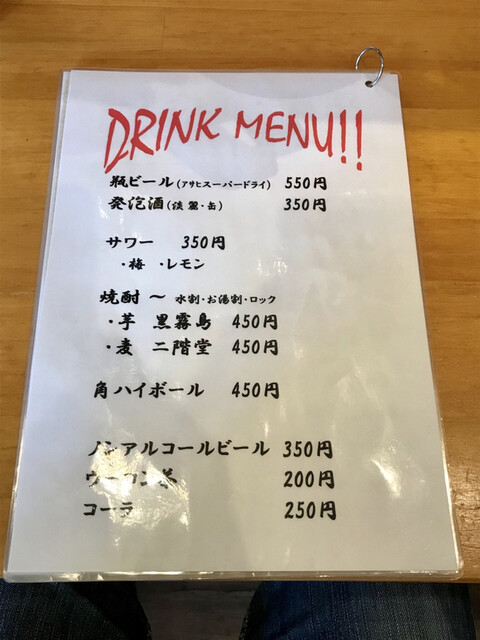 DRINK MENU!!
瓶ビール(アサヒスーパードライ) 550円
発泡酒(淡麗・缶) 350円
サワー 350円
・梅 ・レモン
焼酎 〜 水割・お湯割・ロック
・芋 黒霧島 450円
・麦 二階堂 450円
角ハイボール 450円
ノンアルコールビール 350円
ウーロン茶 200円
コーラ 250円